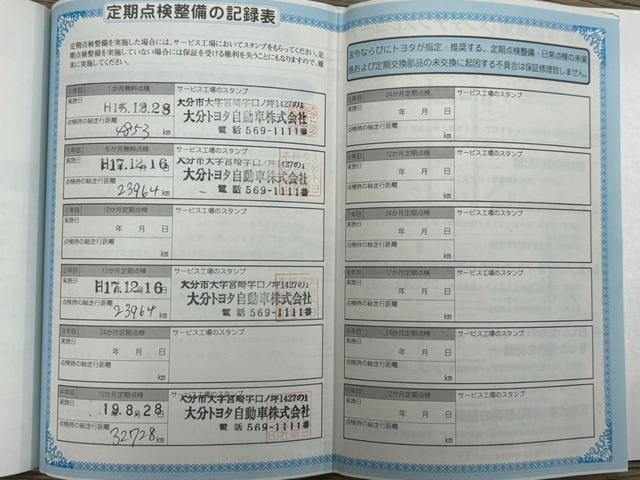 定期点検整備の記録表
定期点検整備を実施した場合には、サービス工場においてスタンプをもらってください。定
期点検整備を実施していない場合には保証を受ける権利を失うことにもなりますので、確
実に実施してください。
1年目 1か月無料点検 サービス工場のスタンプ
実施日 H15.12.28
点検時の総走行距離
4853 km
大分市大字宮崎字口ノ坪1427の1
大分トヨタ自動車株式会社
電話 569-1111番
6か月無料点検 サービス工場のスタンプ
実施日 H17.12.16
点検時の総走行距離
23964 km
大分市大字宮崎字口ノ坪1427の1
大分トヨタ自動車株式会社
電話 569-1111番
1年目 12か月定期点検 サービス工場のスタンプ
実施日 年 月 日
点検時の総走行距離
km
2年目 12か月定期点検 サービス工場のスタンプ
実施日 H17.12.16
点検時の総走行距離
23964 km
大分市大字宮崎字口ノ坪1427の1
大分トヨタ自動車株式会社
電話 569-1111番
3年目 24か月定期点検 サービス工場のスタンプ
実施日 年 月 日
点検時の総走行距離
km
4年目 12か月定期点検 サービス工場のスタンプ
実施日 19.8.28
点検時の総走行距離
32728 km
大分市大字宮崎字口ノ坪1427の1
大分トヨタ自動車株式会社
電話 569-1111番
法令ならびにトヨタが指定・推奨する、定期点検整備・日常点検の未実
施および定期交換部品の未交換に起因する不具合は保証修理致しません。
5年目 24か月定期点検 サービス工場のスタンプ
実施日 年 月 日
点検時の総走行距離
km
6年目 12か月定期点検 サービス工場のスタンプ
実施日 年 月 日
点検時の総走行距離
km
7年目 24か月定期点検 サービス工場のスタンプ
実施日 年 月 日
点検時の総走行距離
km
8年目 12か月定期点検 サービス工場のスタンプ
実施日 年 月 日
点検時の総走行距離
km
9年目 24か月定期点検 サービス工場のスタンプ
実施日 年 月 日
点検時の総走行距離
km
10年目 12か月定期点検 サービス工場のスタンプ
実施日 年 月 日
点検時の総走行距離
km